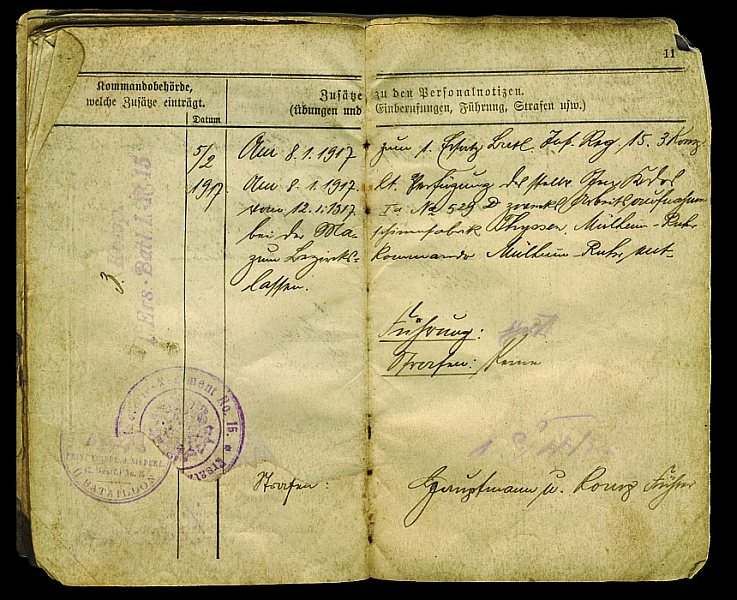 11
Kommandobehörde,
welche Zusätze einträgt.
Datum
Zusätze zu den Personalnotizen.
(Übungen und Einberufungen, Führung, Strafen usw.)
5/2
1917.
Am 8.1.1917 zum 1. Ersatz Batl. Inf. Reg. 15. 3 Komp
Am 8.1.1917. lt. Verfügung des stellv.
vom 12.1.1917. No 529 D zwecks Arbeitsaufnahme
bei der Maschinenfabrik Thyssen, Mülheim-Ruhr
zum Bezirkskommando Mülheim-Ruhr, entlassen.
3 Komp
Ers. Batl. I. R. 15
Führung: gut
Strafen: Keine
Regiment No. 15. * Ersatz
II. BATAILLON
Strafen:
Hauptmann u. Komp Führer